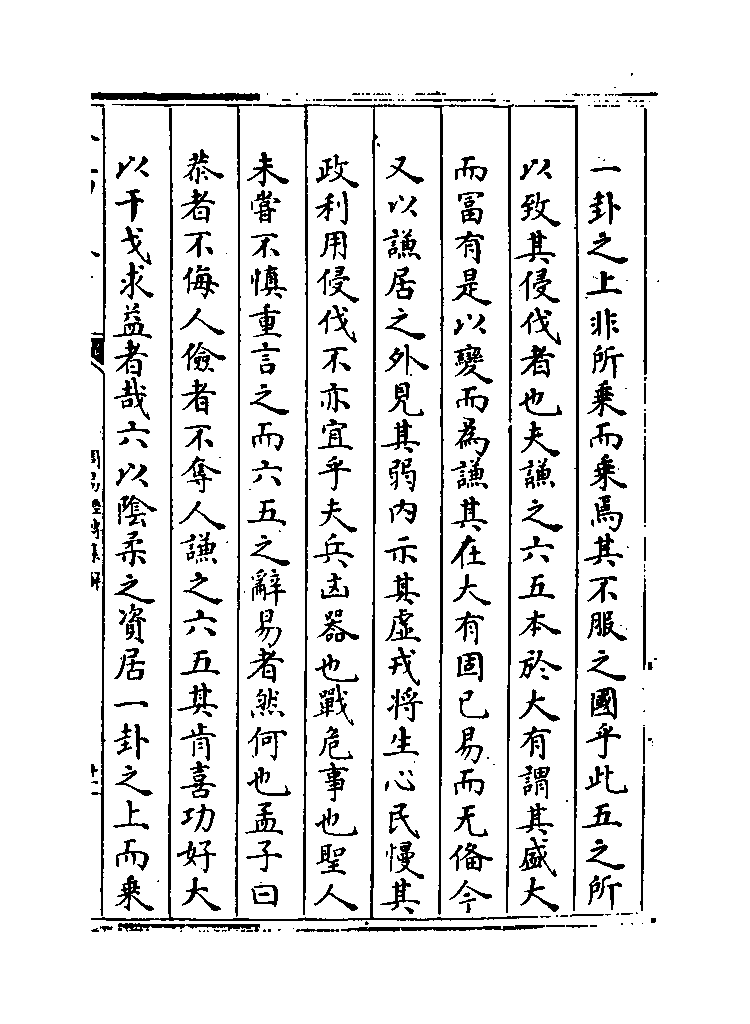 一卦之上非所乗而乗焉其不服之國乎此五之所
以致其侵伐者也夫謙之六五本於大有謂其盛大
而冨有是以變而為謙其在大有固已易而无備今
又以謙居之外見其弱内示其虚戎将生心民慢其
政利用侵伐不亦宜乎夫兵凶器也戰危事也聖人
未嘗不慎重言之而六五之辭易者然何也孟子曰
恭者不侮人儉者不奪人謙之六五其肯喜功好大
以干戈求益者哉六以陰柔之資居一卦之上而乗
周易經傳集解